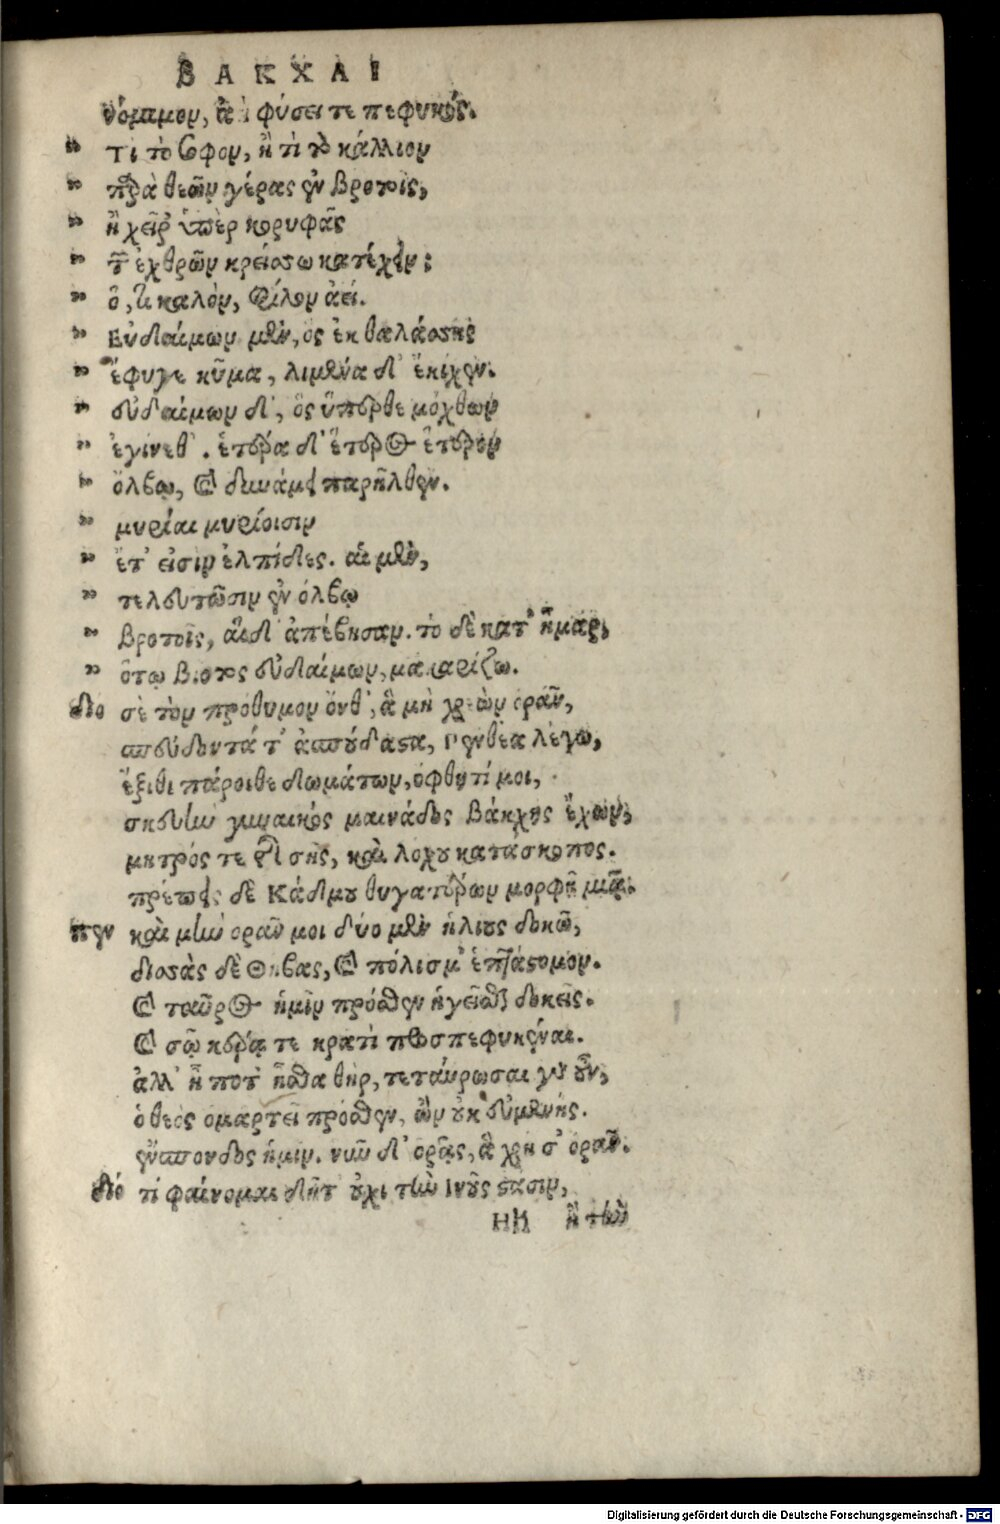 ΒΑΚΧΑΙ
νόμιμον, ἀεὶ φύσει τε πεφυκός.
" Τί τὸ σοφὸν, ἢ τί τὸ κάλλιον
" παρὰ θεῶν γέρας ἐν βροτοῖς,
" ἢ χεῖρ' ὑπὲρ κορυφᾶς
" τῶν ἐχθρῶν κρείσσω κατέχειν;
" ὅ, τι καλὸν, φίλον ἀεί.
" Εὐδαίμων μὲν, ὃς ἐκ θαλάσσης
" ἔφυγε κῦμα, λιμένα δ' ἔκιχεν.
" εὐδαίμων δ', ὃς ὕπερθε μόχθων
" ἐγένεθ'. ἑτέρα δ' ἕτερος ἕτερον
" ὄλβῳ, καὶ δυνάμει παρῆλθεν.
" μυρίαι μυρίοισιν
" ἔτ' εἰσιν ἐλπίδες. αἱ μὲν,
" τελευτῶσιν ἐν ὄλβῳ
" βροτοῖς, αἱ δ' ἀπέβησαν. τὸ δὲ κατ' ἦμαρ,
" ὅτῳ βίοτος εὐδαίμων, μακαρίζω.
διο σὲ τὸν πρόθυμον ὄνθ', ἃ μὴ χρεὼν ὁρᾶν,
σπεύδοντά τ' ἀσπούδαστα, πενθέα λέγω,
ἔξιθι πάροιθε δωμάτων, ὄφθητί μοι,
σκευὴν γυναικὸς μαινάδος Βάκχης ἔχων,
μητρός τε τῆς σῆς, καὶ λόχου κατάσκοπος.
πρέπεις δὲ Κάδμου θυγατέρων μορφῇ μιᾷ.
πεν καὶ μὴν ὁρᾶν μοι δύο μὲν ἡλίους δοκῶ,
δισσὰς δὲ Θήβας, καὶ πόλισμ' ἑπτάστομον.
καὶ ταῦρος ἡμῖν πρόσθεν ἡγεῖσθαι δοκεῖς.
καὶ σῷ κέρατε κρατὶ προσπεφυκέναι.
ἀλλ' ἦ ποτ' ἦσθα θὴρ, τεταύρωσαι γὰρ οὖν,
ὁ θεὸς ὁμαρτεῖ πρόσθεν, ὢν οὐκ εὐμενὴς.
ἔνσπονδος ἡμῖν. νῦν δ' ὁρᾷς, ἃ χρή σ' ὁρᾶν.
διό τί φαίνομαι δῆτ' οὐχὶ τὴν Ἰνοῦς στάσιν,
ΗΗ ἢ τὴν
Digitalisierung gefördert durch die Deutsche Forschungsgemeinschaft - DFG